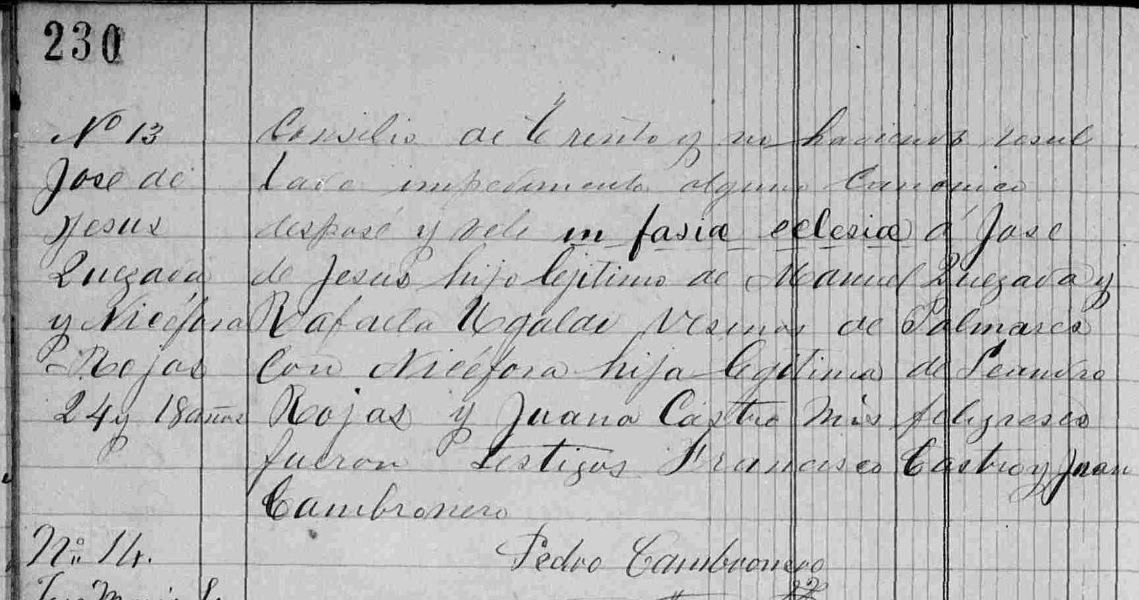 230
Nº 13
Jose de
Jesus
Quezada
y Nicéfora
Rojas
24 y 18 años
Consilio de Trento y no haviendo resul
tado impedimento alguno Canonico
desposé y velé in fasiæ eclesiæ á Jose
de Jesus hijo lejitimo de Manuel Quezada y
Rafaela Ugalde Vesinos de Palmares
Con Nicéfora hija legitima de Leandro
Rojas y Juana Castro mis feligreses
fueron testigos Francisco Castro y Juan
Cambronero
Pedro Cambronero
Nº 14.